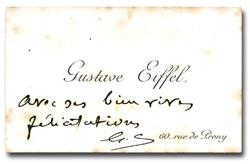 Gustave Eiffel.
avec ses bien vives
félicitations
G. E
60. rue de Prony